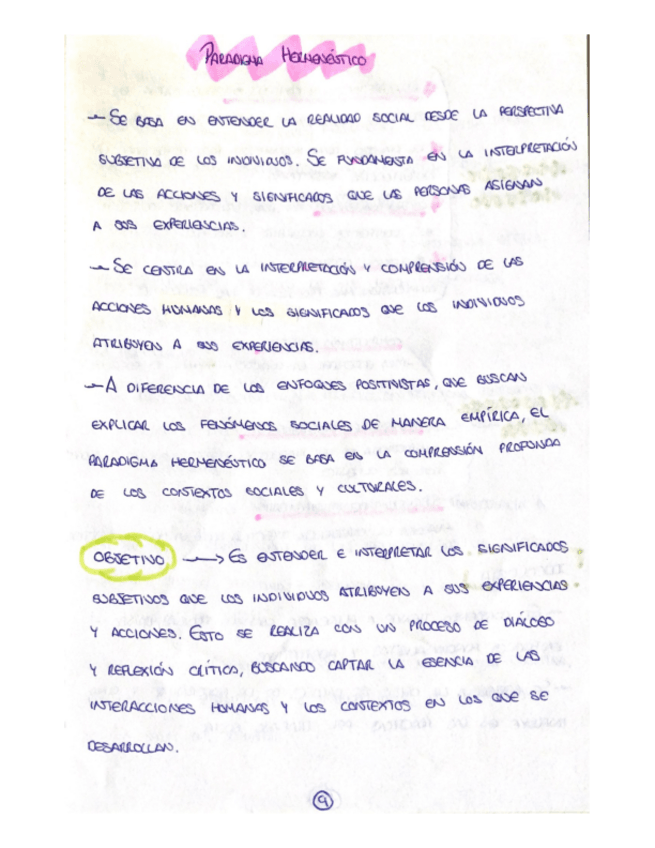 PARADIGMA HERMENÉUTICO
– SE BASA EN ENTENDER LA REALIDAD SOCIAL DESDE LA PERSPECTIVA
SUBJETIVA DE LOS INDIVIDUOS. SE FUNDAMENTA EN LA INTERPRETACIÓN
DE LAS ACCIONES Y SIGNIFICADOS QUE LAS PERSONAS ASIGNAN
A SUS EXPERIENCIAS.
– SE CENTRA EN LA INTERPRETACIÓN Y COMPRENSIÓN DE LAS
ACCIONES HUMANAS Y LOS SIGNIFICADOS QUE LOS INDIVIDUOS
ATRIBUYEN A SUS EXPERIENCIAS.
– A DIFERENCIA DE LOS ENFOQUES POSITIVISTAS, QUE BUSCAN
EXPLICAR LOS FENÓMENOS SOCIALES DE MANERA EMPÍRICA, EL
PARADIGMA HERMENÉUTICO SE BASA EN LA COMPRENSIÓN PROFUNDA
DE LOS CONTEXTOS SOCIALES Y CULTURALES.
OBJETIVO → ES ENTENDER E INTERPRETAR LOS SIGNIFICADOS
SUBJETIVOS QUE LOS INDIVIDUOS ATRIBUYEN A SUS EXPERIENCIAS
Y ACCIONES. ESTO SE REALIZA CON UN PROCESO DE DIÁLOGO
Y REFLEXIÓN CRÍTICA, BUSCANDO CAPTAR LA ESENCIA DE LAS
INTERACCIONES HUMANAS Y LOS CONTEXTOS EN LOS QUE SE
DESARROLLAN.
9